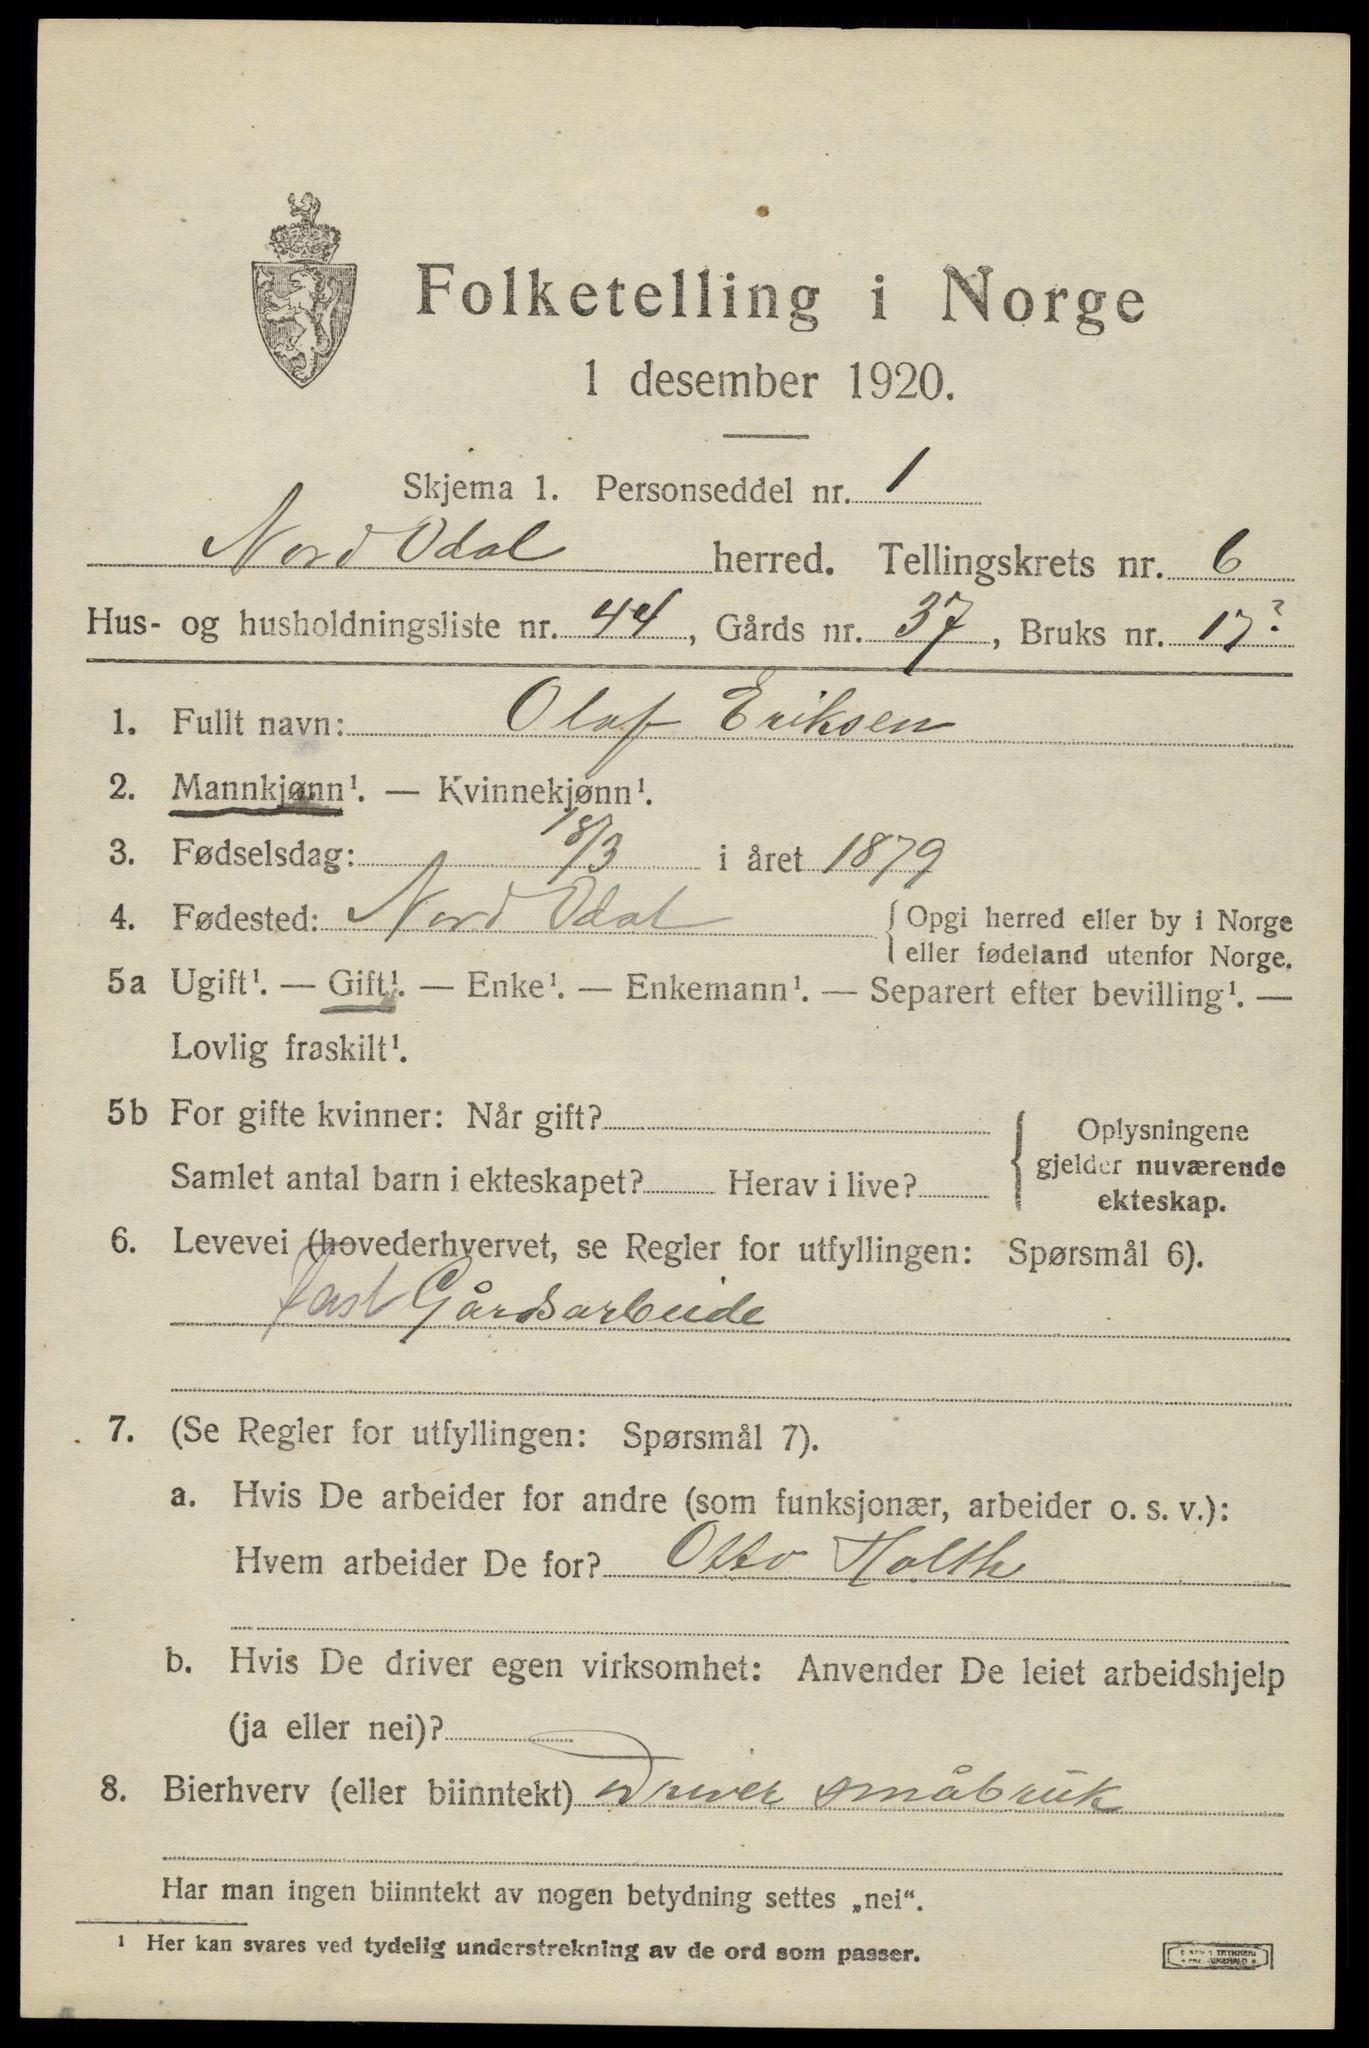 Folketelling i Norge
1 desember 1920.
Skjema 1. Personseddel nr. 1
Nord Odal herred. Tellingskrets nr. 6
Hus- og husholdningsliste nr. 44, Gårds nr. 37, Bruks nr. 17?
1. Fullt navn: Olaf Eriksen
2. Mannkjønn¹. — Kvinnekjønn¹.
3. Fødselsdag: 18/3 i året 1879
4. Fødested: Nord Odal { Opgi herred eller by i Norge
eller fødeland utenfor Norge.
5a Ugift¹. — Gift¹. — Enke¹. — Enkemann¹. — Separert efter bevilling¹. —
Lovlig fraskilt¹.
5b For gifte kvinner: Når gift?
Samlet antal barn i ekteskapet? Herav i live?
{ Oplysningene
gjelder nuværende
ekteskap.
6. Levevei (hovederhvervet, se Regler for utfyllingen: Spørsmål 6).
fast Gårdsarbeide
7. (Se Regler for utfyllingen: Spørsmål 7).
a. Hvis De arbeider for andre (som funksjonær, arbeider o. s. v.):
Hvem arbeider De for? Otto Holth
b. Hvis De driver egen virksomhet: Anvender De leiet arbeidshjelp
(ja eller nei)?
8. Bierhverv (eller biinntekt) Driver småbruk
Har man ingen biinntekt av nogen betydning settes „nei“.
¹ Her kan svares ved tydelig understrekning av de ord som passer.